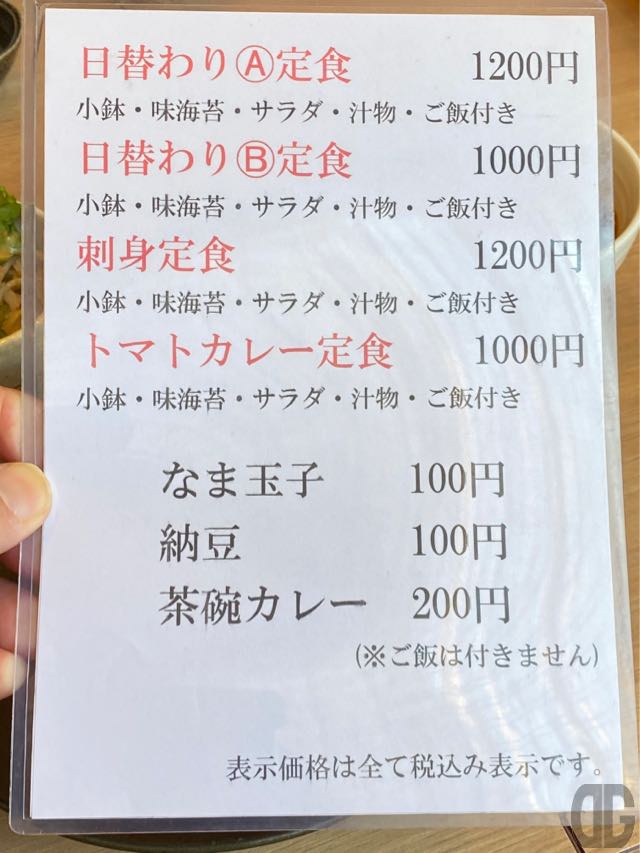 日替わりⒶ定食 1200円
小鉢・味海苔・サラダ・汁物・ご飯付き
日替わりⒷ定食 1000円
小鉢・味海苔・サラダ・汁物・ご飯付き
刺身定食 1200円
小鉢・味海苔・サラダ・汁物・ご飯付き
トマトカレー定食 1000円
小鉢・味海苔・サラダ・汁物・ご飯付き
なま玉子 100円
納豆 100円
茶碗カレー 200円
(※ご飯は付きません)
表示価格は全て税込み表示です。